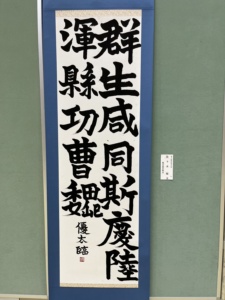 群生咸同斯慶陸
渾縣功曹魏
優太臨